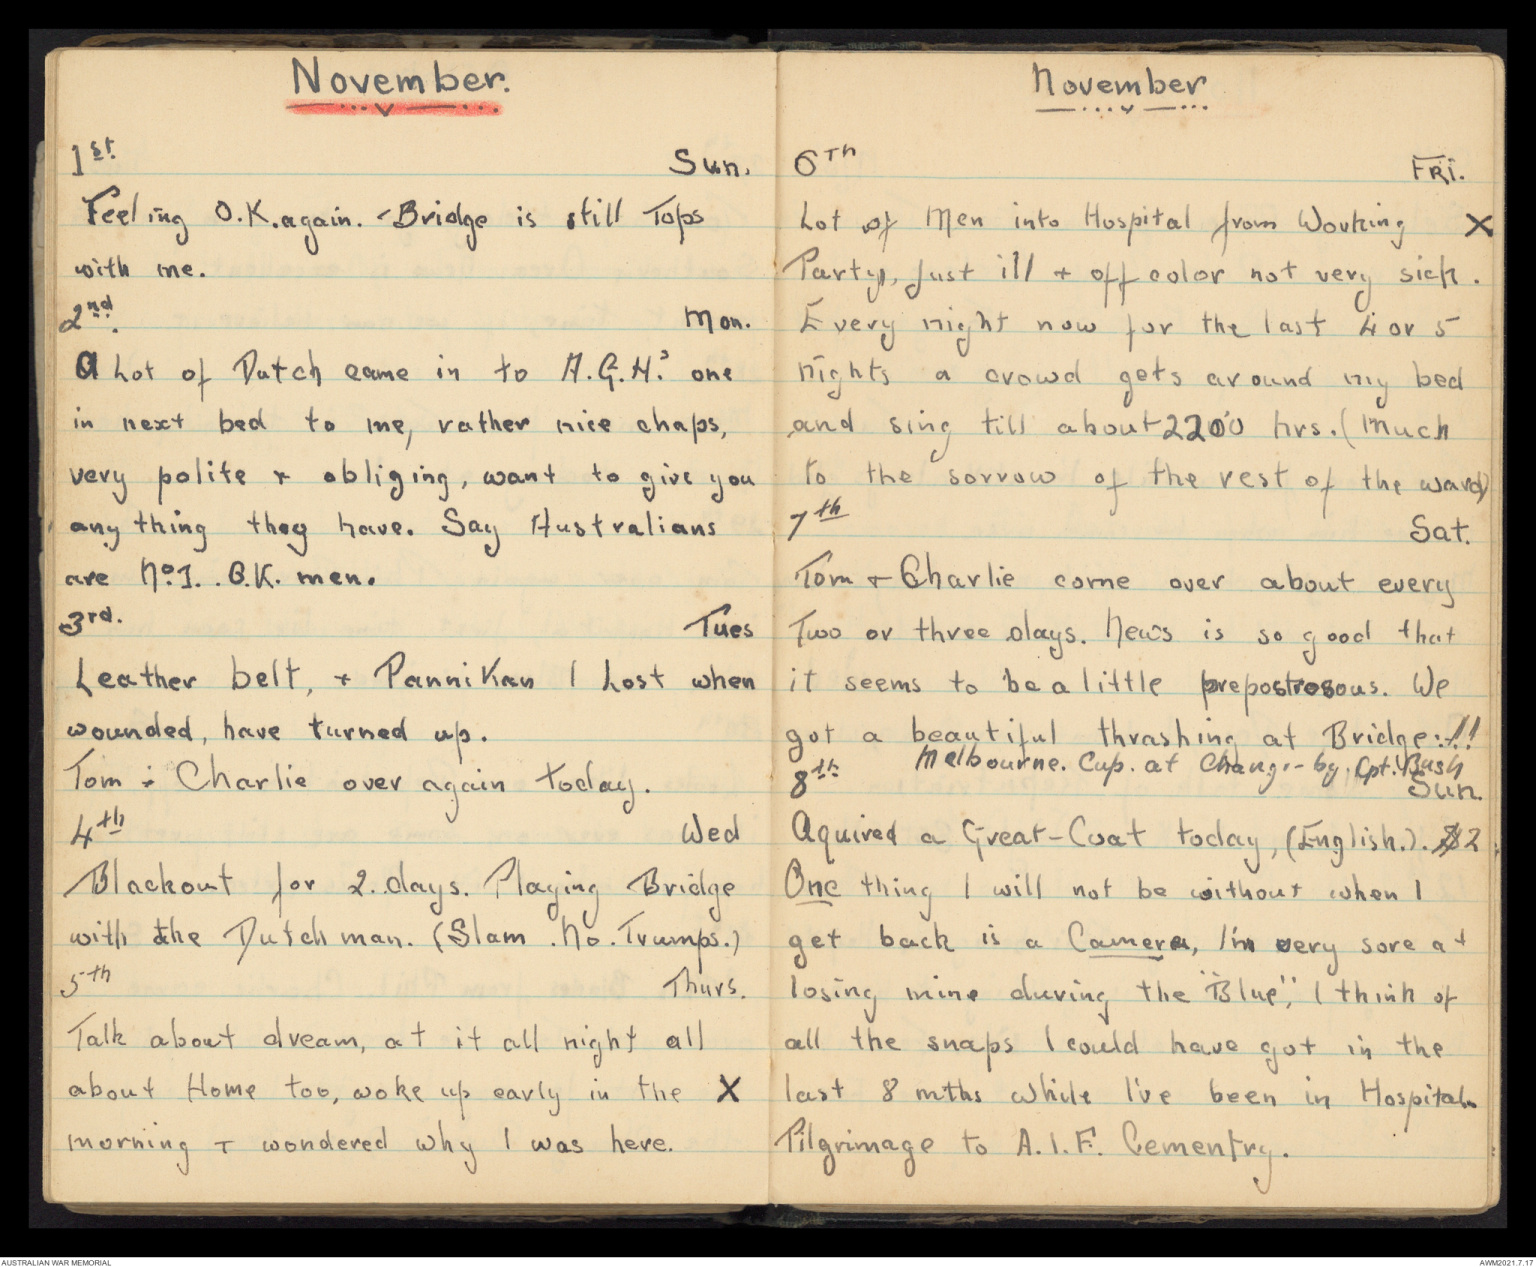 November.
1st Sun.
Feeling O.K. again. - Bridge is still Tops
with me.
2nd. Mon.
A Lot of Dutch came in to A.G.H.' one
in next bed to me, rather nice chaps,
very polite + obliging, want to give you
any thing they have. Say Australians
are No. 1. O.K. men.
3rd. Tues
Leather belt, + PanniKan I Lost when
wounded, have turned up.
Tom + Charlie over again today.
4th Wed
Blackout for 2. days. Playing Bridge
with the Dutch man. (Slam . No. Trumps.)
5th Thurs.
Talk about dream, at it all night all
about Home too, woke up early in the X
morning + wondered why I was here.
November
6Th FRi.
Lot of Men into Hospital from Working X
Party, Just ill + off color not very sick.
Every night now for the last 4 or 5
nights a crowd gets around my bed
and sing till about 2200 hrs. (Much
to the sorrow of the rest of the ward)
7th Sat.
Tom + Charlie come over about every
Two or three days. News is so good that
it seems to be a little prepostrosous. We
got a beautiful thrashing at Bridge:-!!
Melbourne. Cup. at Changi - by. Cpt. Bush
8th Sun.
Aquired a Great-Coat today, (English.). $2
One thing I will not be without when I
get back is a Camera, I'm very sore at
losing mine during the "Blue", I think of
all the snaps I could have got in the
last 8 mths while I've been in Hospital.
Pilgrimage to A.I.F. Cementry.
AUSTRALIAN WAR MEMORIAL
AWM2021.7.17